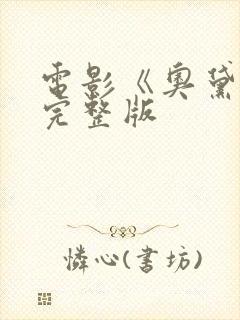 電影《奧黛
完整版
憐心(書坊)